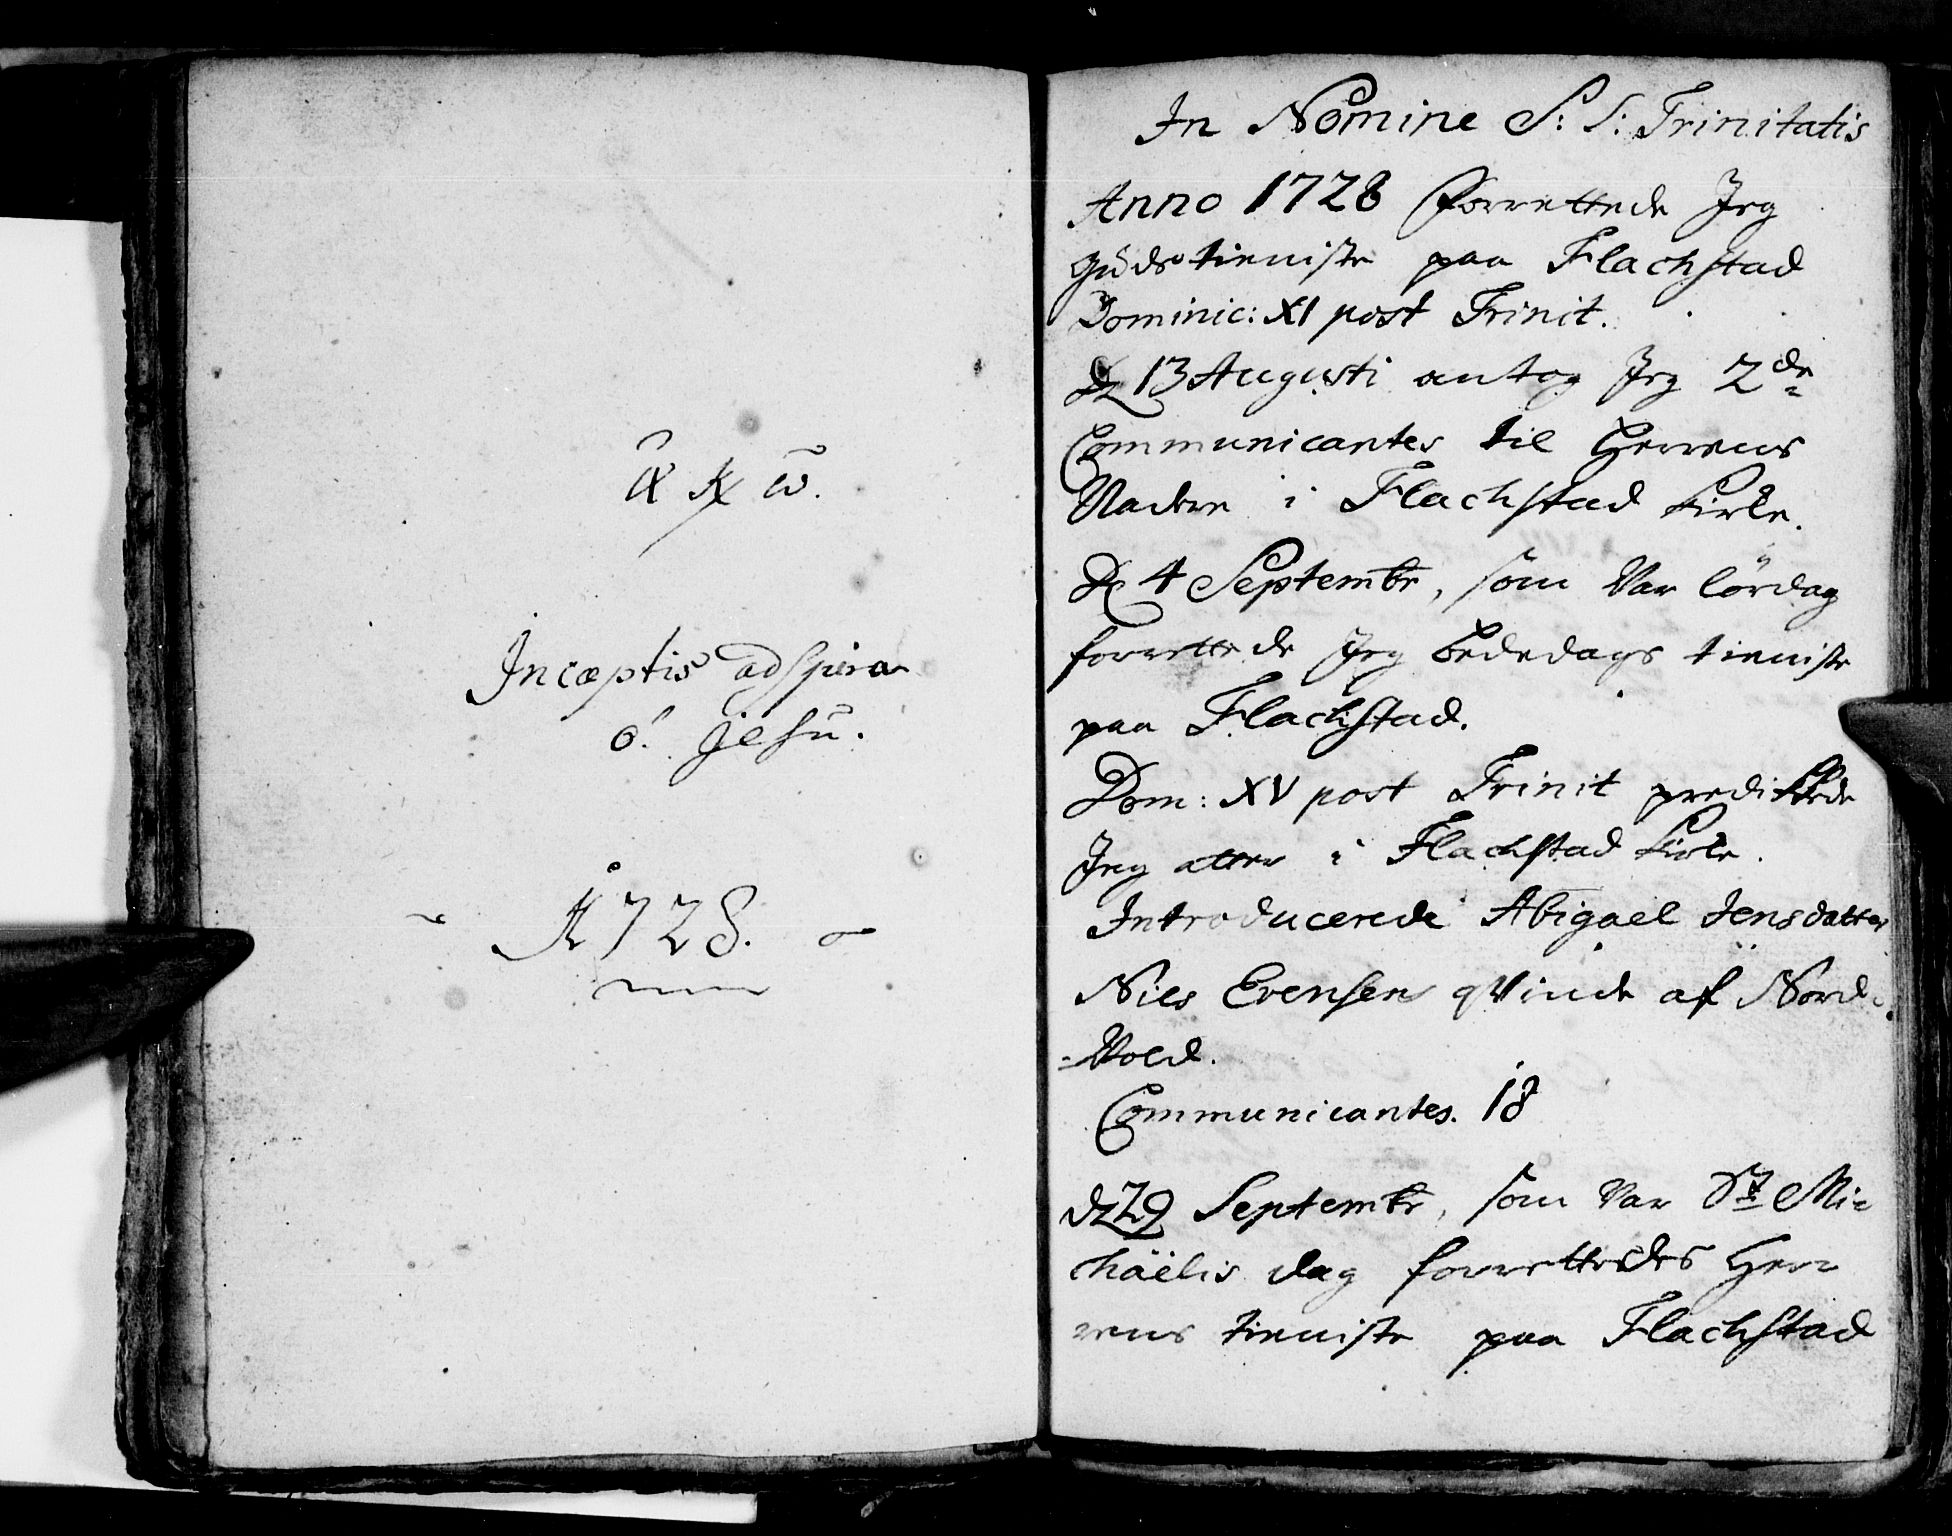 α ω.
Incæptis adspira
ô! Jesu.
1728.
In Nomine S: S: Trinitatis
Anno 1728 forrettede Jeg
Guds tieniste paa Flachstad
Dominic: XI post Trinit.
D 13 Augusti antog Jeg 2de
Communicantes til Herrens
Nadere i Flachstad Kirke.
D 4 Septembr, som Var lördag
forrettede Jeg bededags tieniste
paa Flachstad.
Dom: XV post Trinit predikede
Jeg atter i Flachstad Kirke.
Introducerede Abigael Jensdatter
Niels Evensens qVinde af Nord-
-Vold.
Communicantes. 18
d 29 Septembr, som Var St Mi-
chäëlis dag forrettedes Her-
rens tieniste paa Flachstad